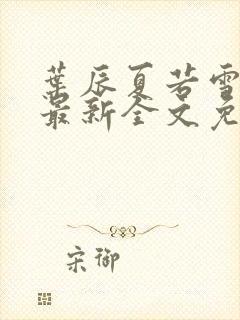 葉辰夏若雪
最新全文免
宋御